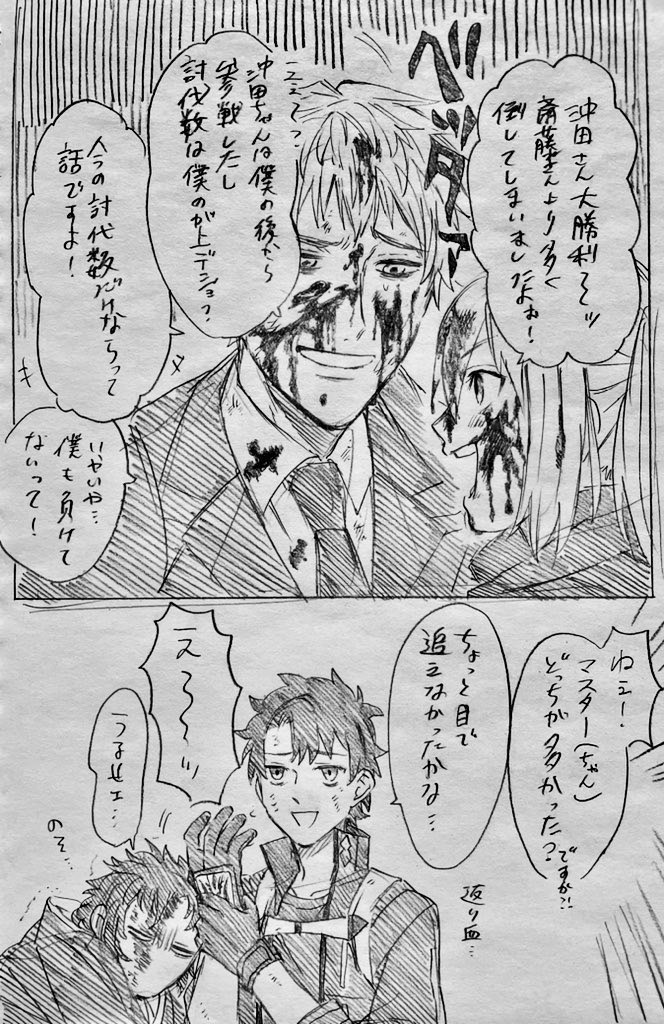 沖田さん大勝利〜ッ
斎藤さんより多く
倒してしまいましたよぉ!
ベッタァ
ええ〜?
沖田ちゃんは僕の後から
参戦したし
討伐数は僕のが上デショ?
今の討伐数だけならって
話ですよ!
いやいや…
僕も負けて
ないって!
ねぇー!
マスター(ちゃん)
どっちが多かった?
ですか?!
ちょっと目で
追えなかったかな…
返り血…
え〜〜ッ
うるせェ…
のそ…